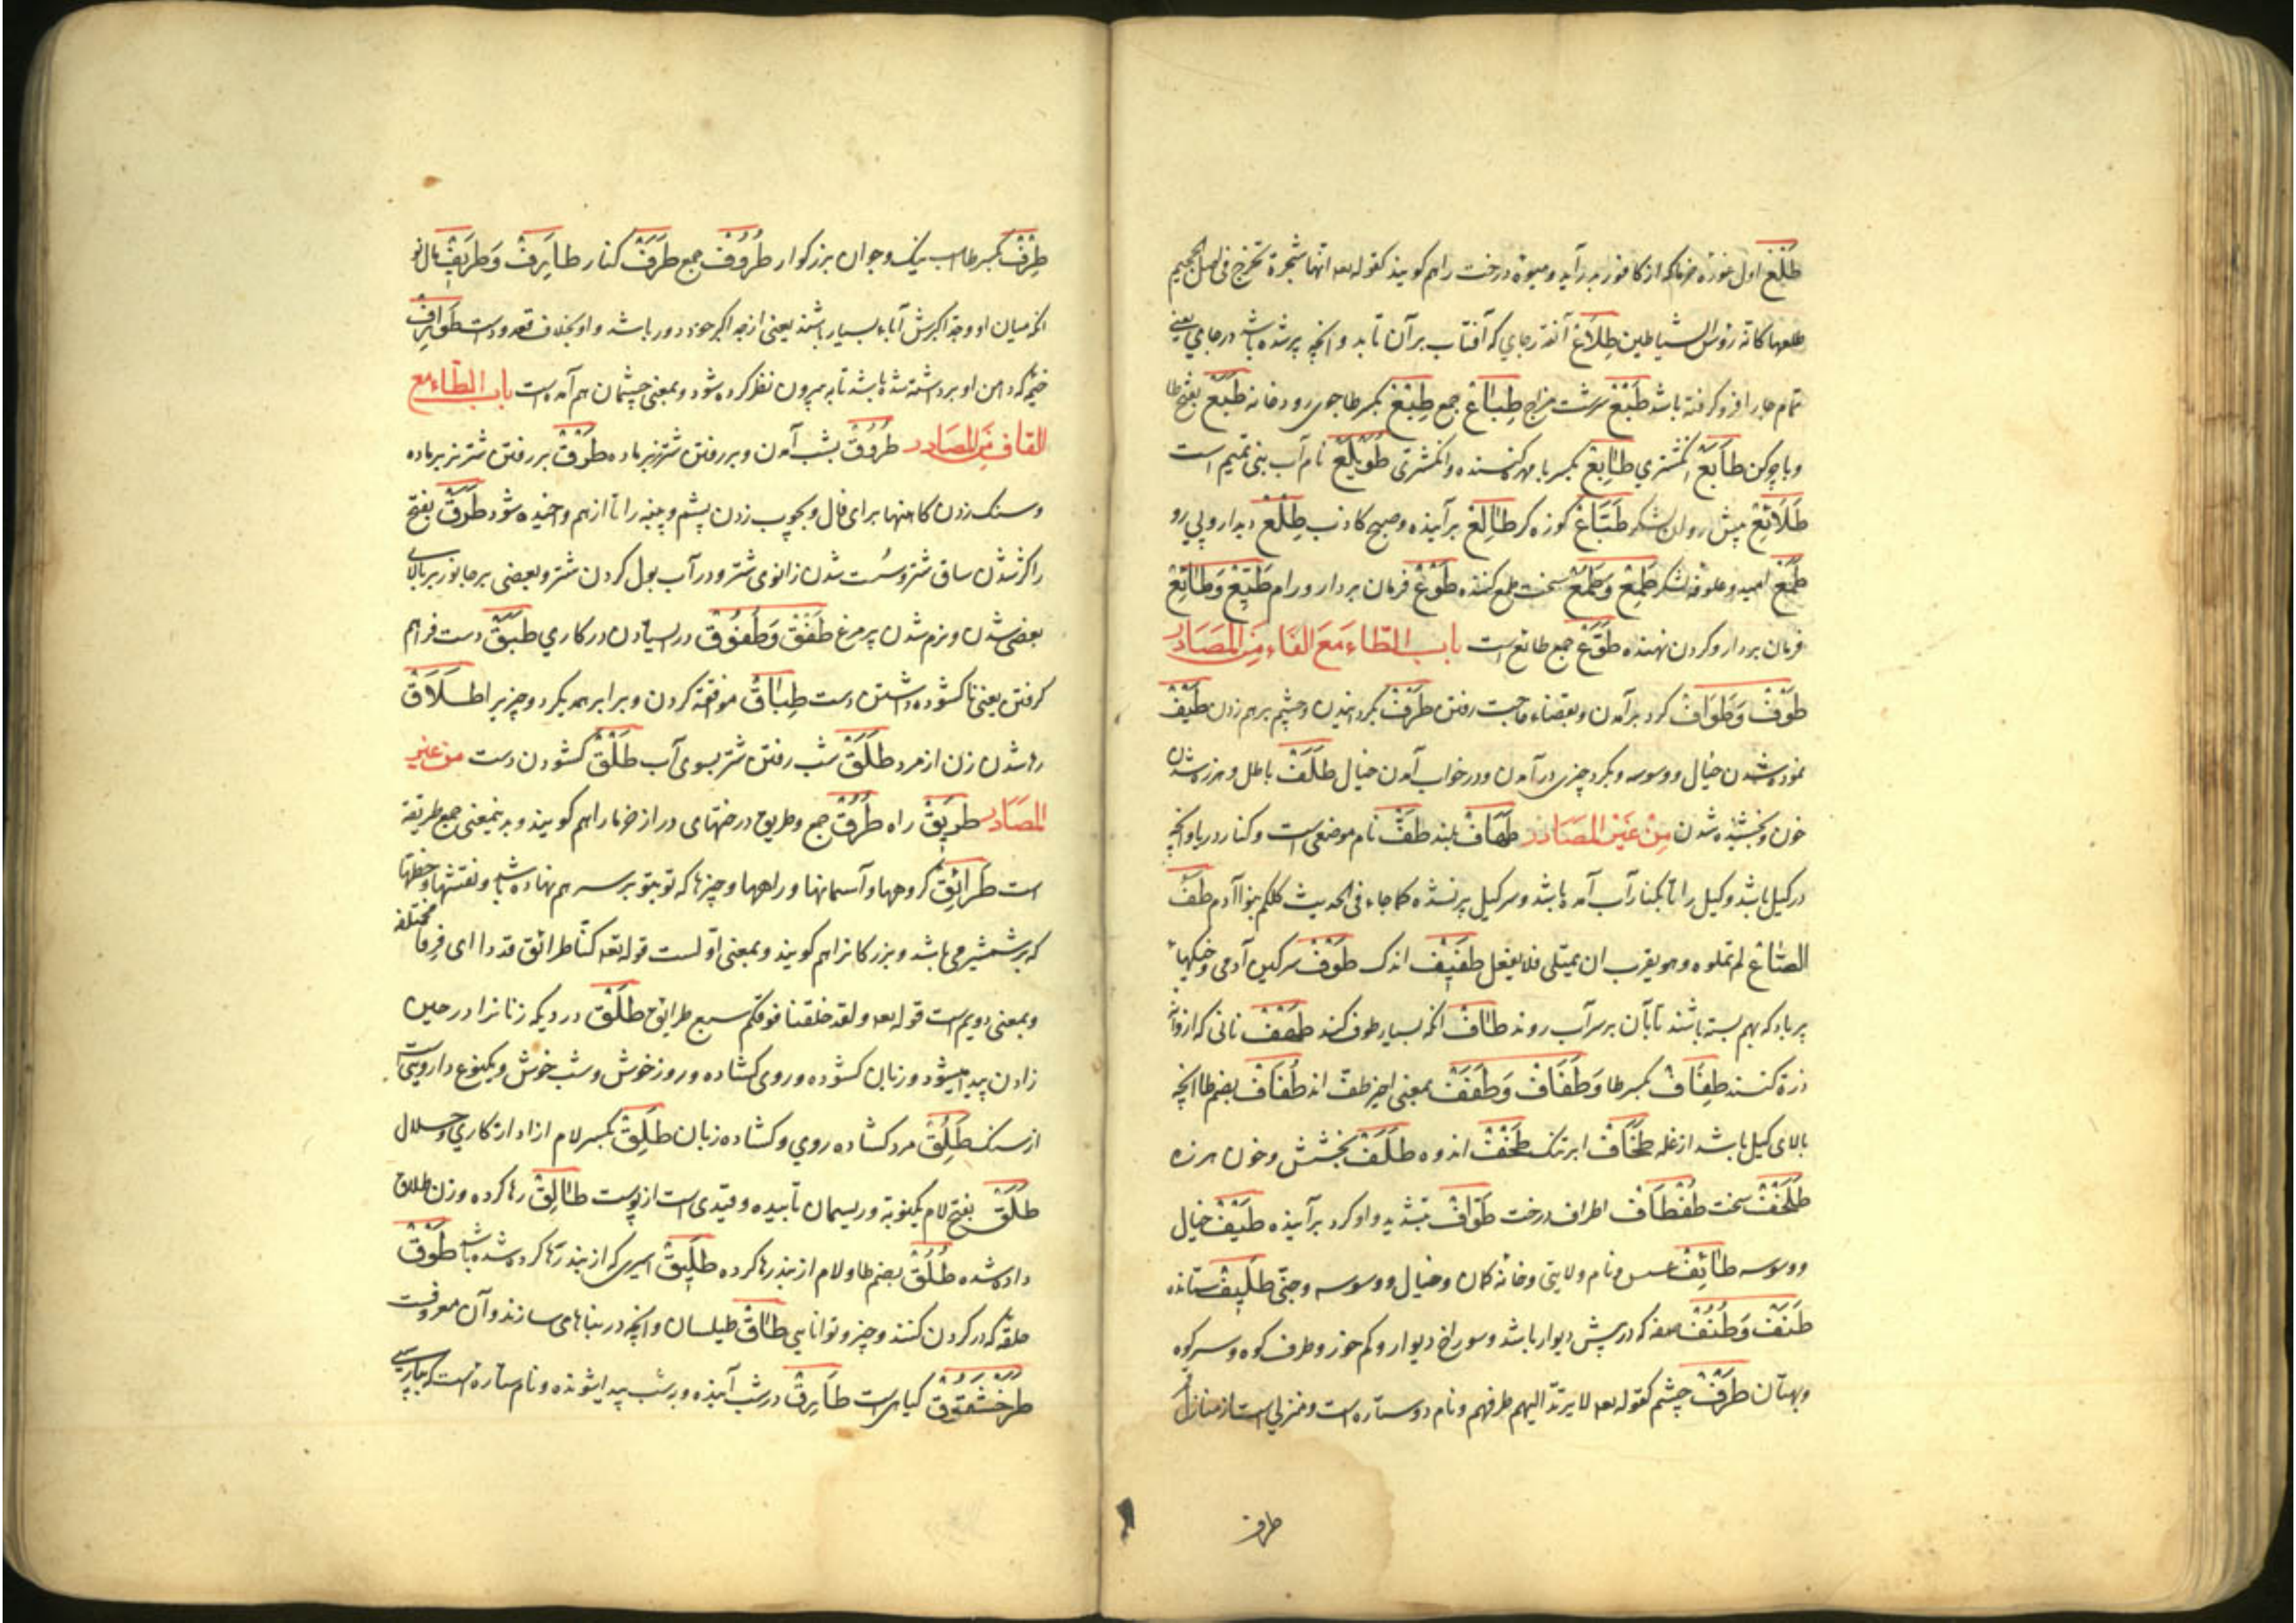 طَلْع اول غوزه خرما که از کافور بدر آید و میوهٔ درخت را هم کویند کقوله تعه انها شجرة تخرج فی اصل الجحیم
طلعها کانه رؤس الشیاطین طِلَاع آنقدر جای که آفتاب برآن تابد و انچه پر شده باشد در جای یعنی
تمام جا را فرو کرفته باشد طَبْع سرشت مزاج طِبَاع جمع طِبْع بکسر طا جوی رودخانه طَبَع بفتح طا
وبا چرکن طَابَع انکشتری طَابِع بکسر با مهر کننده وانکشتری طُوَیْلِع نام آب بنی تمیم است
طَلَائِع پیش روان لشکر طَبَّاع کوزه کر طَالِع برآینده وصبح کاذب طِلْع دیدار وپی رو
طَمَع امید وعلوفه لشکر طَمِع وَطَمُع سخت طمع کننده طَوْع فرمان بردار ورام طَیِّع وَطَائِع
فرمان بردار وکردن نهنده طُوَّع جمع طائع است باب الطاء مَعَ الفَاء مِنَ المَصَادِر
طَوْف وَطَوَاف کرد برآمدن وبقضاء حاجت رفتن طَرْف نکردانیدن وچشم برهم زدن طَیْف
نموده شدن خیال ووسوسه وبکرد چیزی درآمدن ودرخواب آمدن خیال طَلَف باطل وهرزه شدن
خون وبخشیده شدن مِنْ غَیْرِ المَصَادِر طَهَاف بلند طَفّ نام موضعی است وکنار دریا وانچه
درکیل باشد وکیل را تا بکنار آب آمده باشد وسر کیل پر نشده کما جاء فی الحدیث کلکم بنوا آدم طَفّ
الصَّاع لم تملوه وهو یقرب ان یمتلی فلا یفعل طَفِیْف اندک طَوْف سرکین آدمی وخیکهاء
پر باد که بهم بسته باشند تا بآن برسر آب روند طَاف انکه بسیار طوف کند طَهْف نانی که از وا
ذرة کنند طِفَاف بکسر طا وَطَفَاف وَطَفَف بمعنی اخیر طف اند طُفَاف بضم طا انچه
بالای کیل باشد ازغله طَخَاف ابر تنک طَخْف اندوه طَلَف بخشش وخون هرزه
طَلَخْف سخت طُفْطَاف اطراف درخت طَوَّاف بتشدید واو کرد برآینده طَیْف خیال
ووسوسه طَائِف عسس ونام ولایتی وخانه کمان وخیال ووسوسه وجنّی طَلِیْف ستانده
طَنَف وَطُنُف صفه که در پیش دیوار باشد وسوراخ دیوار وکم خور وطرف کوه وسر کوه
وبهتان طَرْف چشم کقوله تعه لا یرتدّ الیهم طرفهم ونام دو ستاره است ومنزلی است از منازل
طرف
طِرْف بکسر طا اسب نیک وجوان بزرکوار طُرُوف جمع طَرَف کنار طَارِف وَطَرِیْف مال نو
انکه میان او وجد اکبرش آباء بسیار باشند یعنی از جد اکبر خود دور باشد واو بخلاف قعدوداست طِرَاف
خیمه که دامن او برداشته شده باشد تا به بیرون نظر کرده شود وبمعنی چشمان هم آمده است باب الطاء مع
القاف مِنَ المصَادر طُرُوق بشب آمدن وبر رفتن شتر نر بر ماده طَرْق بر رفتن شتر نر بر ماده
وسنک زدن کاهنها برای فال وبچوب زدن پشم وپنبه را تا از هم واخیده شود طَرَق بفتح
را کژ شدن ساق شتر وسُست شدن زانوی شتر ودر آب بول کردن شتر وبعضی پر جانور بر بالای
بعضی شدن ونرم شدن پر مرغ طَفَق وَطُفُوق درایستادن در کاری طَبَق دست فراهم
کرفتن یعنی ناکشوده داشتن دست طِبَاق موافقه کردن وبرابر همدیکر دو چیز بر اطلَاق
رها شدن زن از مرد طَلَق شب رفتن شتر بسوی آب طَلْق کشودن دست من غیر
المصَادر طَرِیْق راه طُرُق جمع وطریق درختهای دراز خرما را هم کویند وبدینمعنی جمع طریقه
است طَرَائِق کروهها وآسمانها وراهها وچیزها که توبتو برسر هم نهاده باشد ونقشها وخطها
که برشمشیر می باشد وبزرکانرا هم کویند وبمعنی اوّلست قوله تعه کنّا طرائق قددا ای فرقا مختلفه
وبمعنی دویم است قوله تعه ولقد خلقنا فوقکم سبع طرائق طَلْق دردیکه زنانرا در حین
زادن پیدا میشود وزبان کشوده وروی کشاده وروز خوش وشب خوش ویکنوع دارویست
از سنک طَلِق مرد کشاده روی وکشاده زبان طَلِق بکسر لام ازاد ازکاری وحلال
طَلَق بفتح لام یکنوبه وریسمان تابیده وقیدی است ازپوست طَالِق رها کرده وزن طلاق
داده شده طُلُق بضم طا ولام از بند رها کرده طَلِیْق اسیری که از بند رها کرده شده باشد طَوْق
حلقه که در کردن کنند وچیز وتوانایی طَاق طیلسان وانچه در بناها می سازند وآن معروفست
طَرَخْشَقُوق کیاهی است طَارِق درشب آینده ودرشب پیدا شونده ونام ستاره است که بپارسی